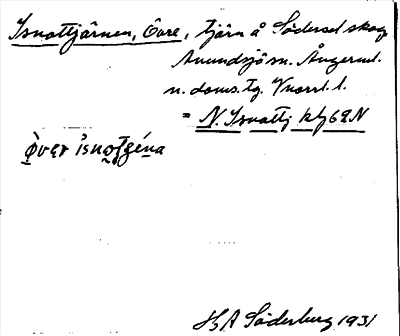 Isnottjärnen, Övre, tjärn å Södersel skog
Anundsjö sn. Ångerml.
n. doms. tg. V.norrl. l.
= N. Isnottj kbl 62 N
öv̀ər ìsnotʒéna
HBA Söderberg 1931